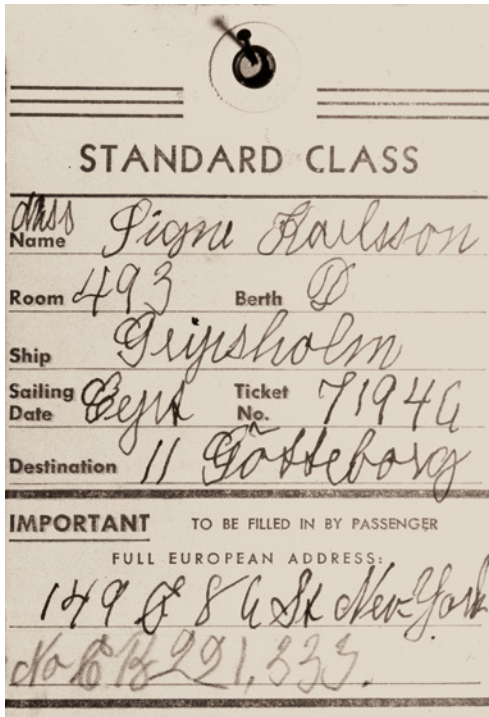 STANDARD CLASS
Miss
Name Signe Karlsson
Room 493 Berth D
Ship Gripsholm
Sailing Date Sept Ticket No. 71946
Destination 11 Götteborg
IMPORTANT TO BE FILLED IN BY PASSENGER
FULL EUROPEAN ADDRESS:
149 E 86 St New York
No E B 221,333.